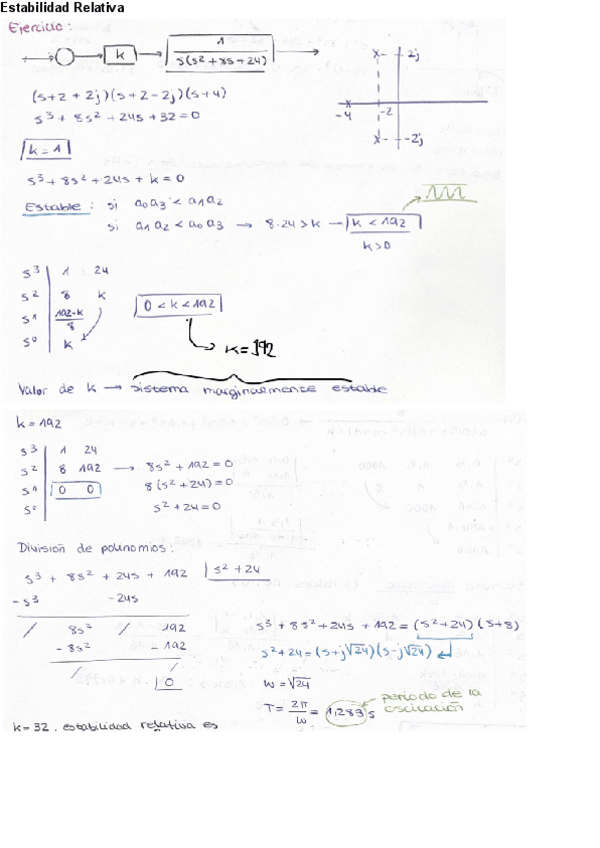 Estabilidad Relativa
Ejercicio:
k
1
s(s² + 8s + 24)
(s+2+2j)(s+2-2j)(s+4)
s³ + 8s² + 24s + 32 = 0
2j
-4
-2
-2j
k = 1
s³ + 8s² + 24s + k = 0
Estable: si a₀a₃ < a₁a₂
si a₁a₂ < a₀a₃ → 8·24 > k → k < 192
k > 0
s³ | 1 24
s² | 8 k
s¹ | 192-k / 8
s⁰ | k
0 < k < 192
k = 192
Valor de k → sistema marginalmente estable
k = 192
s³ | 1 24
s² | 8 192 → 8s² + 192 = 0
s¹ | 0 0 8(s² + 24) = 0
s⁰ | s² + 24 = 0
División de polinomios:
s³ + 8s² + 24s + 192 | s² + 24
-s³ -24s
/ 8s² / 192
-8s² -192
/ /
0
s³ + 8s² + 24s + 192 = (s² + 24)(s + 8)
s² + 24 = (s + j√24)(s - j√24)
w = √24
T = 2π / w = 1,283 s
periodo de la
oscilación
k = 32. estabilidad relativa es